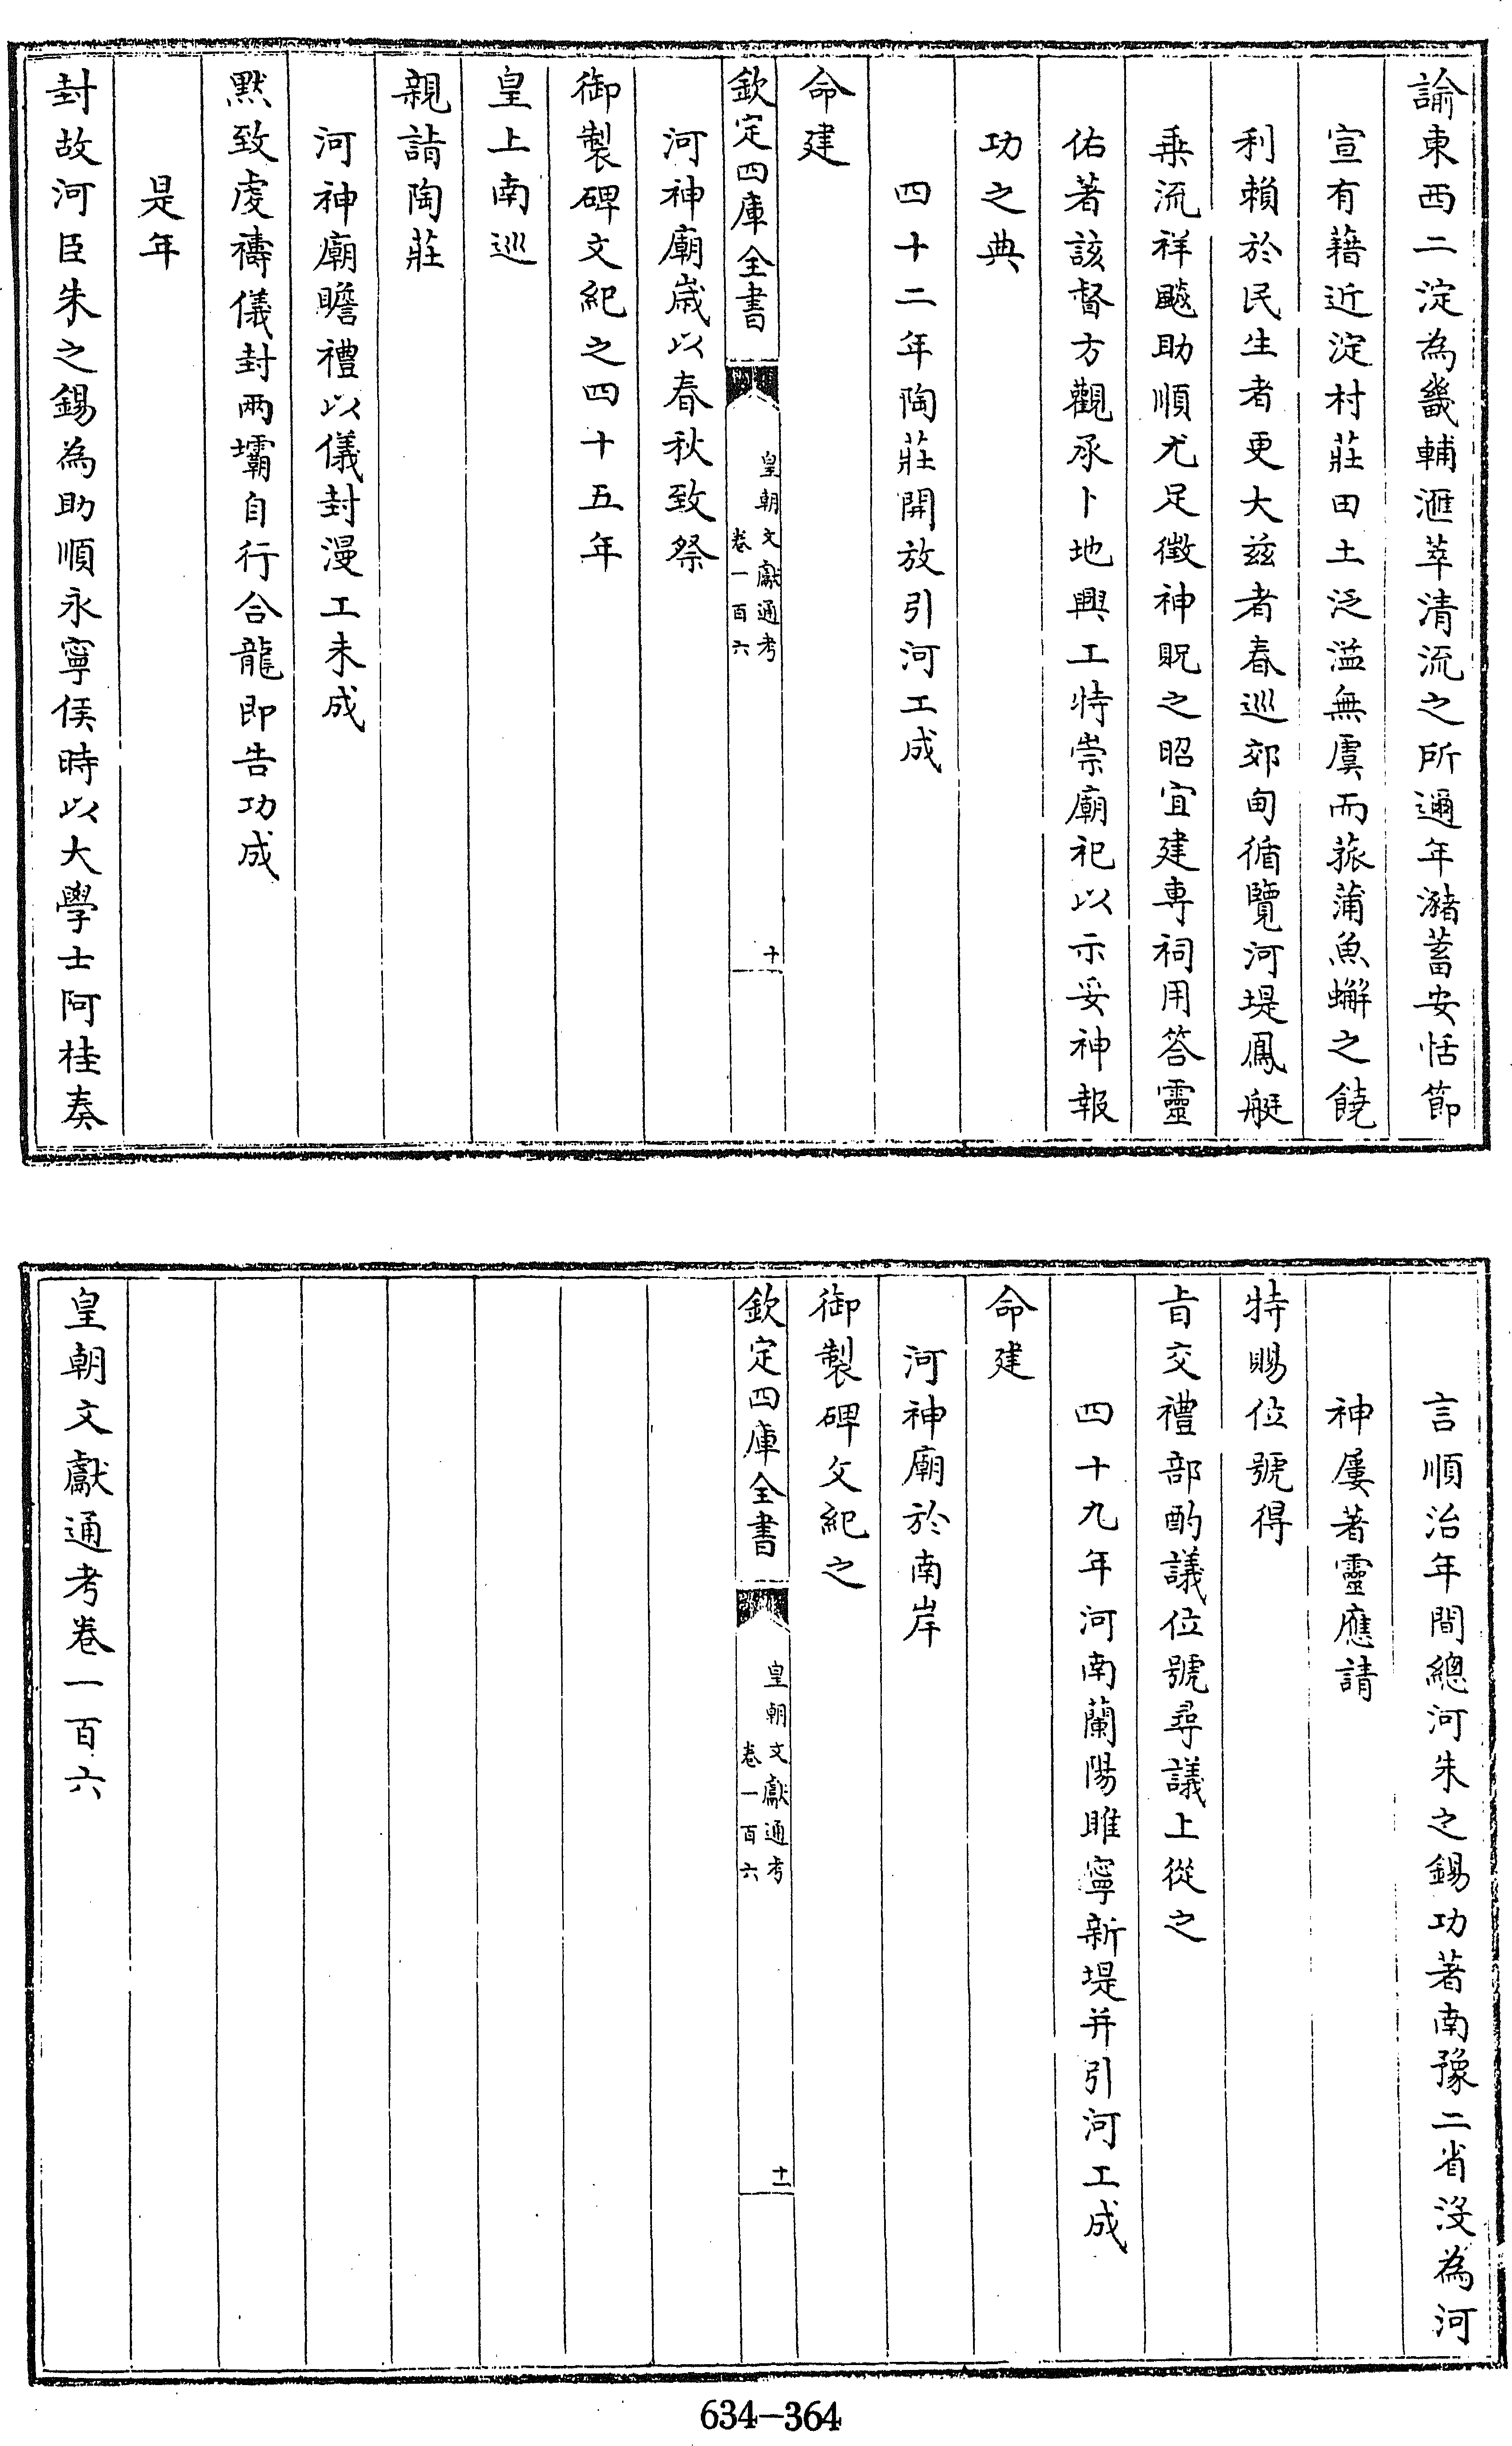 諭東西二淀為畿輔滙萃清流之所邇年瀦蓄安恬節
宣有藉近淀村莊田土泛溢無虞而菰蒲魚蠏之饒
利賴於民生者更大兹者春巡郊甸循覽河堤鳳艇
乗流祥飈助順尤足徵神貺之昭宜建専祠用答靈
佑著該督方觀承卜地興工特崇廟祀以示妥神報
功之典
四十二年陶莊開放引河工成
命建
欽定四庫全書
皇朝文獻通考
卷一百六
十
河神廟歲以春秋致祭
御製碑文紀之四十五年
皇上南巡
親詣陶莊
河神廟瞻禮以儀封漫工未成
黙致虔禱儀封兩壩自行合龍即告功成
是年
封故河臣朱之錫為助順永寧侯時以大學士阿桂奏
言順治年間總河朱之錫功著南豫二省沒為河
神屢著靈應請
特賜位號得
旨交禮部酌議位號尋議上從之
四十九年河南蘭陽睢寧新堤并引河工成
命建
河神廟於南岸
御製碑文紀之
欽定四庫全書
皇朝文獻通考
卷一百六
十一
皇朝文獻通考卷一百六
634-364